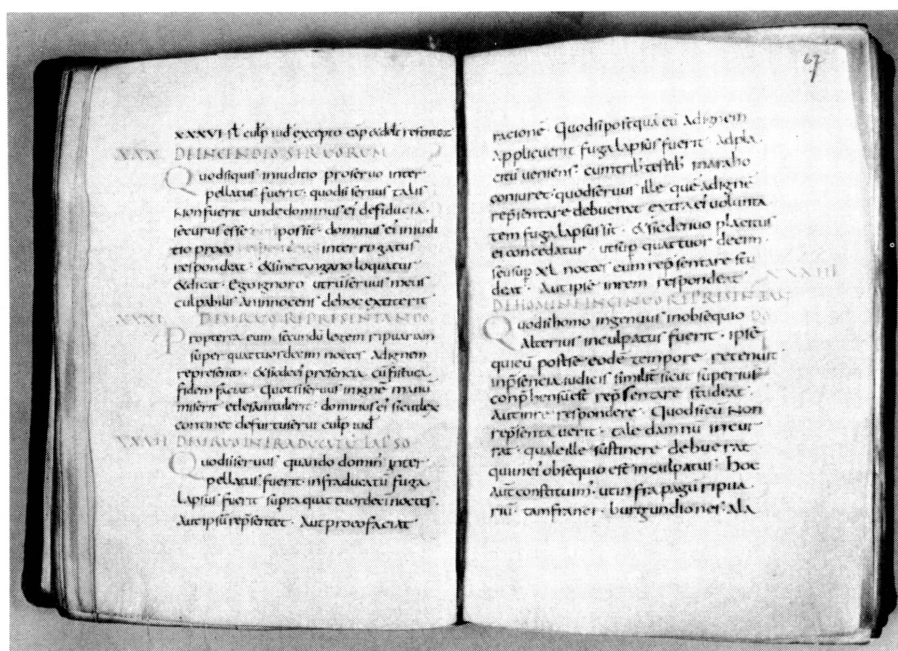 XXXVI sł culp iud excepto cap & delt
XXX DEINCENDIO SERVORUM
Quodsiquis iniuditio proservo inter
pellatus fuerit · quodsi servus talis
Non fuerit unde dominus ei desiducia ·
securus esse possit · dominus ei iniudi
tio proeo inter rogatus
respondeat · & sine tangano loquatur
& dicat · Ego ignoro utru servus meus
culpabilis aninnocens dehoc extiterit
XXXI DESERVO REPRESENTANDO
Propterea eum secundu legem ripuariam
super quattuordecim noctes Adignem
represento · & sic dedi presencia cu fistuca
fidem faciat · Quodsi servus inigne manu
miserit etlesantulerit · dominus ei sicutlex
continet defurtu servi culp iud
XXXII DESERVO INFRADUCATU LAPSO
Quodsi servus quando domin inter
pellatus fuerit · infraducatu fuga
lapsus fuerit supra quattuordeci noctes ·
Aut ipsu repsentet · Aut proeo faciat
67
racione · Quodsi postqua eu Adignem
Applicuerit fuga lapsus fuerit · Adpla
citu veniens cumtrib testib inaraho
coniuret · quod servus ille que adigne
repsentare debuerat extra ei volunta
tem fuga lapsus sit · & sic denuo placitus
ei concedatur · utsup quattuor decim ·
seu sup XL noctes eum repsentare stu
deat · Aut ipse inrem respondeat XXXIII
DEHOMINE INGENUO REPRESENTAN
Quodsi homo ingenuus inobsequio
Alterius inculpatus fuerit · ipse
quieu postse eode tempore retenuit
inpsencia iudicis similit sicut superius
conphensu est repsentare studeat ·
Aut inre respondere · Quodsi eu Non
repsenta verit · tale damnu incur
rat · quale ille sustinere debuerat
quineius obsequio est inculpatus · hoc
Aut constituim · utinfra pagu ripua
riu · tam franci · burgundiones · Ala